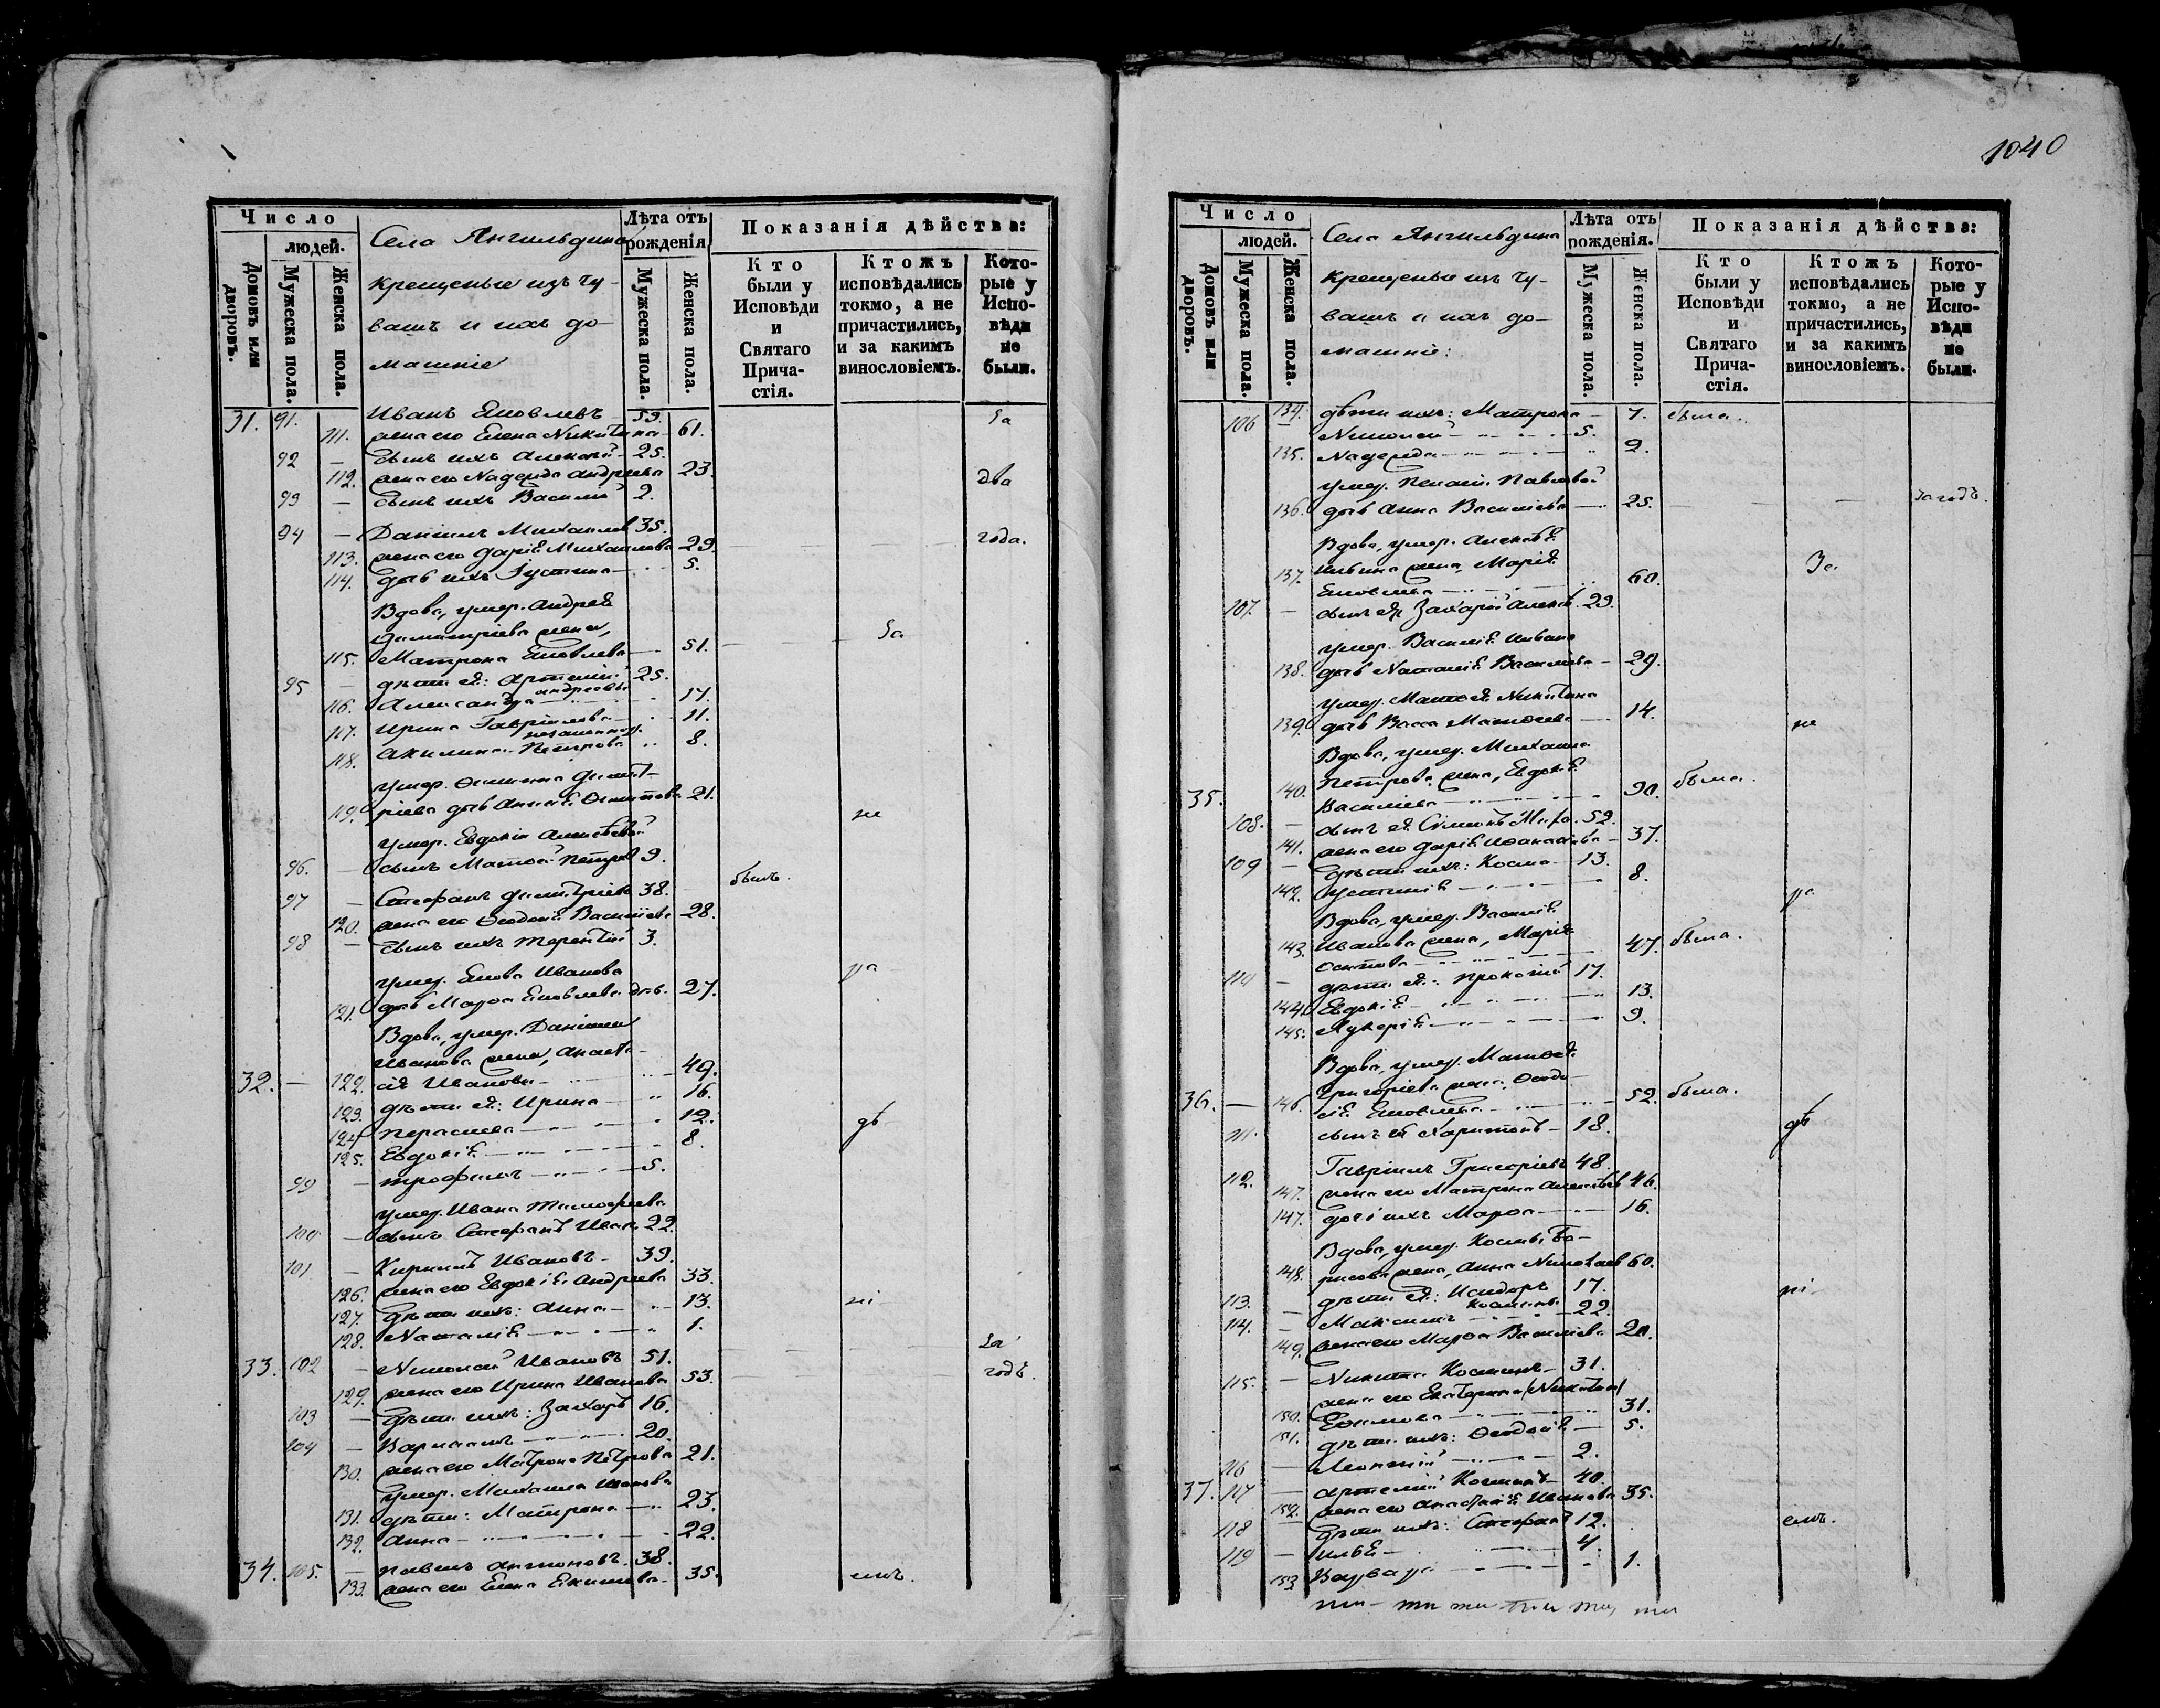 1040
Число
людей.
Домовъ или дворовъ.
Мужеска пола.
Женска пола.
Села Янгильдина
крещеные изъ чу-
вашъ и ихъ до-
машніе
Лѣта отъ рожденія
Мужеска пола.
Женска пола.
Показанія дѣйства:
Кто были у Исповѣди и Святаго Прича-стія.
Ктожъ исповѣдались токмо, а не причастились, и за какимъ винословіемъ.
Кото-рые у Испо-вѣди не были.
31. 91. Иванъ Яковлевъ 59. За
111. жена его Елена Никитина 61.
92 — сынъ ихъ Алексѣй 25.
112. жена его Надежда Андреева 23. два
93 — сынъ ихъ Василій 2.
94 — Даніилъ Михайловъ 35. года.
113. жена его Дарія Михайлова 29.
114. дочь ихъ Іустина 5.
Вдова, умер. Андрея
Димитріева жена,
115. Матрона Яковлева 51. За
95 — дѣти ея: Артемій 25.
андреевы
116. Александра 17.
117. Ирина Гавріилова 11.
незаконнор.
118. Акилина Петрова 8.
умер. Димит-
119. ріева дочь 21. не
умер. Евдокіи Алексѣевой
96. — сынъ Матѳей Петровъ 9.
былъ.
97 — Стефанъ Димитріевъ 38.
120. жена его Ѳеодосія Василіева 28.
98 — сынъ ихъ Терентій 3.
умер. Якова Иванова ра
121. дочь Марѳа Яковлева 27.
Вдова, умер. Даніила
Иванова жена, Анаста-
32. — 122. сія Иванова 49.
123. дѣти ея: Ирина 16.
124 Параскева 12. дѣ
125. Евдокія 8.
99 — Трофимъ 5.
умер. Ивана Тимофеева
100 — сынъ Стефанъ Иван. 22.
101 — Кириллъ Ивановъ 39.
126. жена его Евдокія Андреева 33.
127. дѣти ихъ: Анна 13. ні
128. Наталія 1.
33. 102 — Николай Ивановъ 51. За
129. жена его Ирина Иванова 53. годъ.
103 — дѣти ихъ: Захаръ 16.
104 — Варлаамъ 20.
130. жена его Матрона Петрова 21.
умер. Михаила Иванова
131. дѣти: Матрона 23.
132. Анна 22.
34. 105. — Павелъ Антоновъ 38.
133. жена его Елена Екимова 35. емъ.
Число
людей.
Домовъ или дворовъ.
Мужеска пола.
Женска пола.
Села Янгильдина
крещеные изъ чу-
вашъ и ихъ до-
машніе:
Лѣта отъ рожденія.
Мужеска пола.
Женска пола.
Показанія дѣйства:
Кто были у Исповѣди и Святаго Прича-стія.
Ктожъ исповѣдались токмо, а не причастились, и за какимъ винословіемъ.
Кото-рые у Испо-вѣди не были.
134. дѣти ихъ: Матрона 7. была.
106 — Николай 5.
135. Надежда 2.
умер. Пелагіи Павловой
136. дочь Анна Василіева 25. за годъ.
Вдова, умер. Алексѣя
137. жена, Марія За
Яковлева 60.
107. — сынъ ея Захарій Алексѣ. 29.
умер. Василія Иванова
138. дочь Наталія Василіева 29.
умер. Матѳея Никитина
139. дочь Васса Матѳеева 14. не
Вдова, умер. Михаила
35. 140. Петрова жена, Евдокія
Василіева 90. была.
108. — сынъ ея Симеонъ Миха. 52.
141. жена его Дарія 37.
109 — дѣти ихъ: Косма 13.
142. Іустинія 8. ра
Вдова, умер. Василія
143. Иванова жена, Марія
Осипова 47. была.
110 — дѣти ея: Прокопій 17.
144. Евдокія 13.
145. Лукерія 9.
Вдова, умер. Матѳея
Григоріева жена, Ѳеодо-
36. — 146. сія Яковлева 52. была.
111. сынъ ея Харитонъ 18. дѣ
112. Гавріилъ Григоріевъ 48.
147. жена его Матрона Алексѣев 46.
147. дочь ихъ Марѳа 16.
Вдова, умер. Космы Бо-
148. рисова жена, Анна Николаев 60.
113. — дѣти ея: Исидоръ 17. ні-
Космины
114. — Максимъ 22.
149. жена его Марѳа Василіева 20.
115. — Никита Косминъ 31.
жена его Екатерина (Никитин)
150. Ефимова 31.
151. дѣти ихъ: Ѳеодосія 5.
116 — Леонтій 2.
37. 117 — Артемій Косминъ 40.
152. жена его Анастасія Иванова 35.
118 — дѣти ихъ: Стефанъ 12. емъ.
119 — Илья 4.
153 Варвара 1.